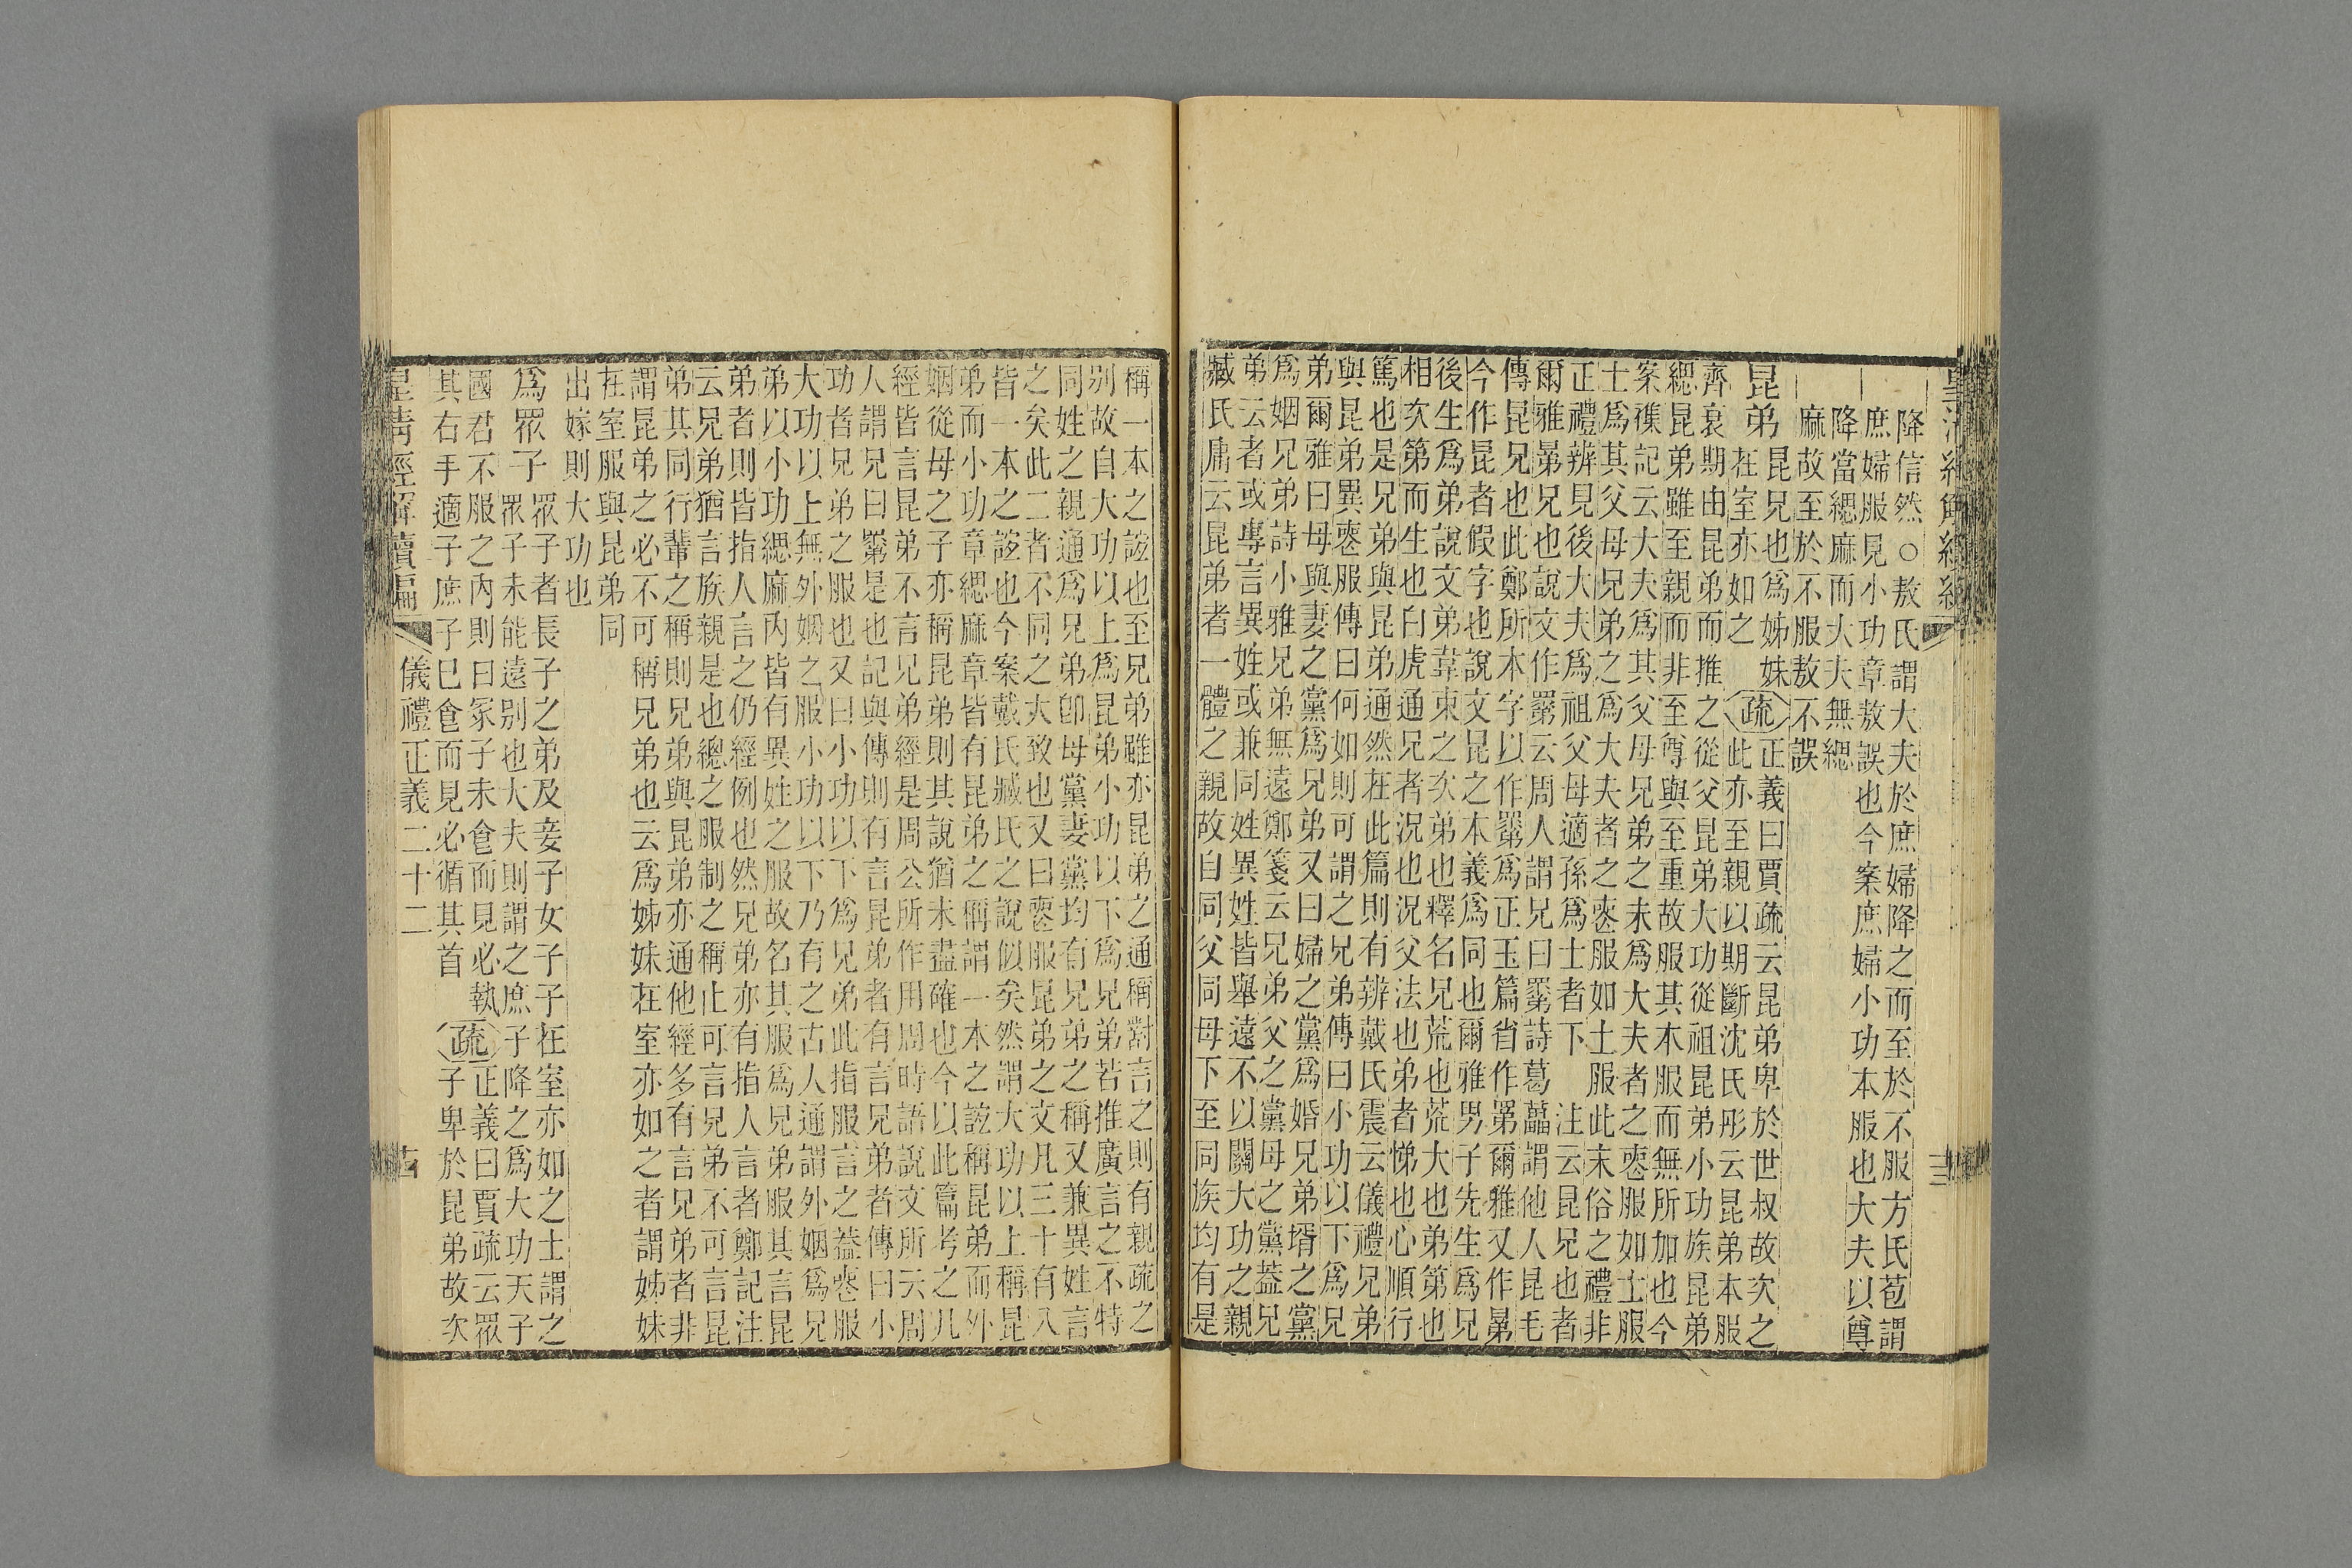 降信然○敖氏謂大夫於庶婦降之而至於不服方氏苞謂
庶婦服見小功章敖誤也今案庶婦小功本服也大夫以尊
降當緦麻而大夫無緦
麻故至於不服敖不誤
昆弟
昆兄也爲姊妹
在室亦如之
疏
正義曰賈疏云昆弟卑於世叔故次之
此亦至親以期斷沈氏彤云昆弟本服
齊衰期由昆弟而推之從父昆弟大功從祖昆弟小功族昆弟
緦昆弟雖至親而非至尊與至重故服其本服而無所加也今
案襍記云大夫爲其父母兄弟之未爲大夫者之喪服如士服
士爲其父母兄弟之爲大夫者之喪服如士服此末俗之禮非
正禮辨見後大夫爲祖父母適孫爲士者下 注云昆兄也者
爾雅晜兄也說文作𥊽云周人謂兄曰𥊽詩葛藟謂他人昆毛
傳昆兄也此鄭所本字以作𥊽爲正玉篇省作䍮爾雅又作晜
今作昆者假字也說文昆之本義爲同也爾雅男子先生爲兄
後生爲弟說文弟韋束之次弟也釋名兄荒也荒大也弟第也
相次第而生也白虎通兄者況也況父法也弟者悌也心順行
篤也是兄弟與昆弟通然在此篇則有辨戴氏震云儀禮兄弟
與昆弟異喪服傳曰何如則可謂之兄弟傳曰小功以下爲兄
弟爾雅曰母與妻之黨爲兄弟又曰婦之黨爲婚兄弟壻之黨
爲姻兄弟詩小雅兄弟無遠鄭箋云兄弟父之黨母之黨葢兄
弟云者或專言異姓或兼同姓異姓皆舉遠不以關大功之親
臧氏庸云昆弟者一體之親故自同父同母下至同族均有是
稱一本之誼也至兄弟雖亦昆弟之通稱對言之則有親疏之
别故自大功以上爲昆弟小功以下爲兄弟若推廣言之不特
同姓之親通爲兄弟卽母黨妻黨均有兄弟之稱又兼異姓言
之矣此二者不同之大致也又曰喪服昆弟之文凡三十有入
皆一本之誼也今案戴氏臧氏之說似矣然謂大功以上稱昆
弟而小功章緦麻章皆有昆弟之稱謂一本之誼稱昆弟而外
姻從母之子亦稱昆弟則其說猶未盡確也今以此篇考之凡
經皆言昆弟不言兄弟經是周公所作用周時語說文所云周
人謂兄曰𥊽是也記與傳則有言昆弟者有言兄弟者傳曰小
功者兄弟之服也又曰小功以下爲兄弟此指服言之葢喪服
大功以上無外姻之服小功以下乃有之古人通謂外姻爲兄
弟以小功緦麻内皆有異姓之服故名其服爲兄弟服其言昆
弟者則皆指人言之仍經例也然兄弟亦有指人言者鄭記注
云兄弟猶言族親是也總之服制之稱止可言兄弟不可言昆
弟其同行輩之稱則兄弟與昆弟亦通他經多有言兄弟者非
謂昆弟之必不可稱兄弟也云爲姊妹在室亦如之者謂姊妹
在室服與昆弟同
出嫁則大功也
爲眾子
眾子者長子之弟及妾子女子子在室亦如之士謂之
眾子未能遠别也大夫則謂之庶子降之爲大功天子
國君不服之内則曰冢子未食而見必執
其右手適子庶子已食而見必循其首
疏
正義曰賈疏云眾
子卑於昆弟故次
皇淸經解續編
儀禮正義二十二